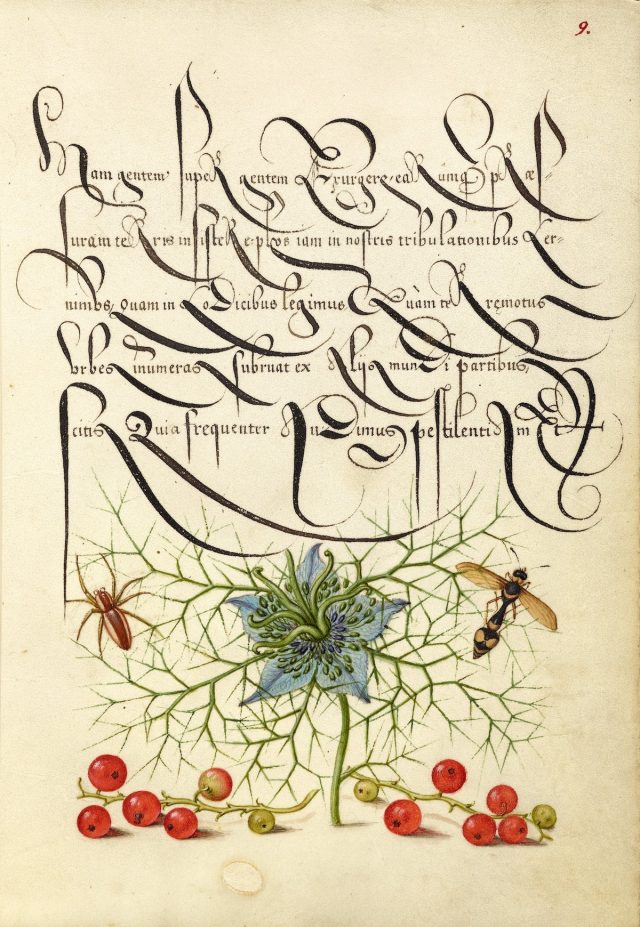 9.
Nam gentem super gentem Exurgere, earumq pres
suram terris insistere, plus iam in nostris tribulationibus Cer=
nimus, Quam in Codicibus legimus, Quàm terręmotus
Vrbes inumeras subruat ex alijs mundi partibus,
scitis Quia frequenter audiuimus pestilentiam Et